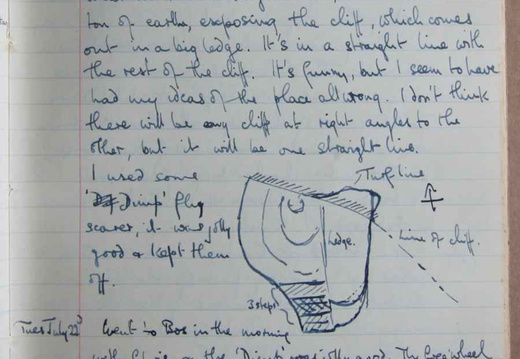 ton of earth, exposing the cliff, which comes
out in a big ledge. It's in a straight line with
the rest of the cliff. It's funny, but I seem to have
had my ideas of the place all wrong. I don't think
there will be any cliff at right angles to the
other, but it will be one straight line.
I used some
'Dimp' fly
scarer, it was jolly
good & kept them
off.
Turf line
Ledge.
Line of cliff.
3 steps
Tues July 22nd Went to Bos in the morning
with
the 'Dimp' was jolly good. The